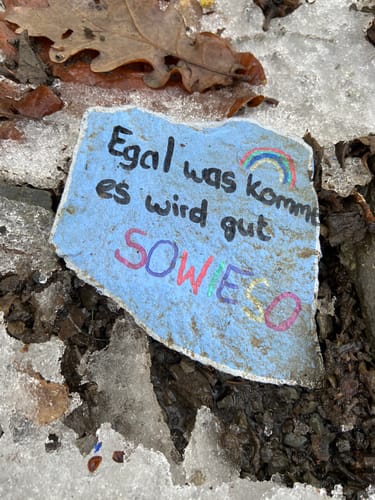 Egal was kommt
es wird gut
SOWIESO